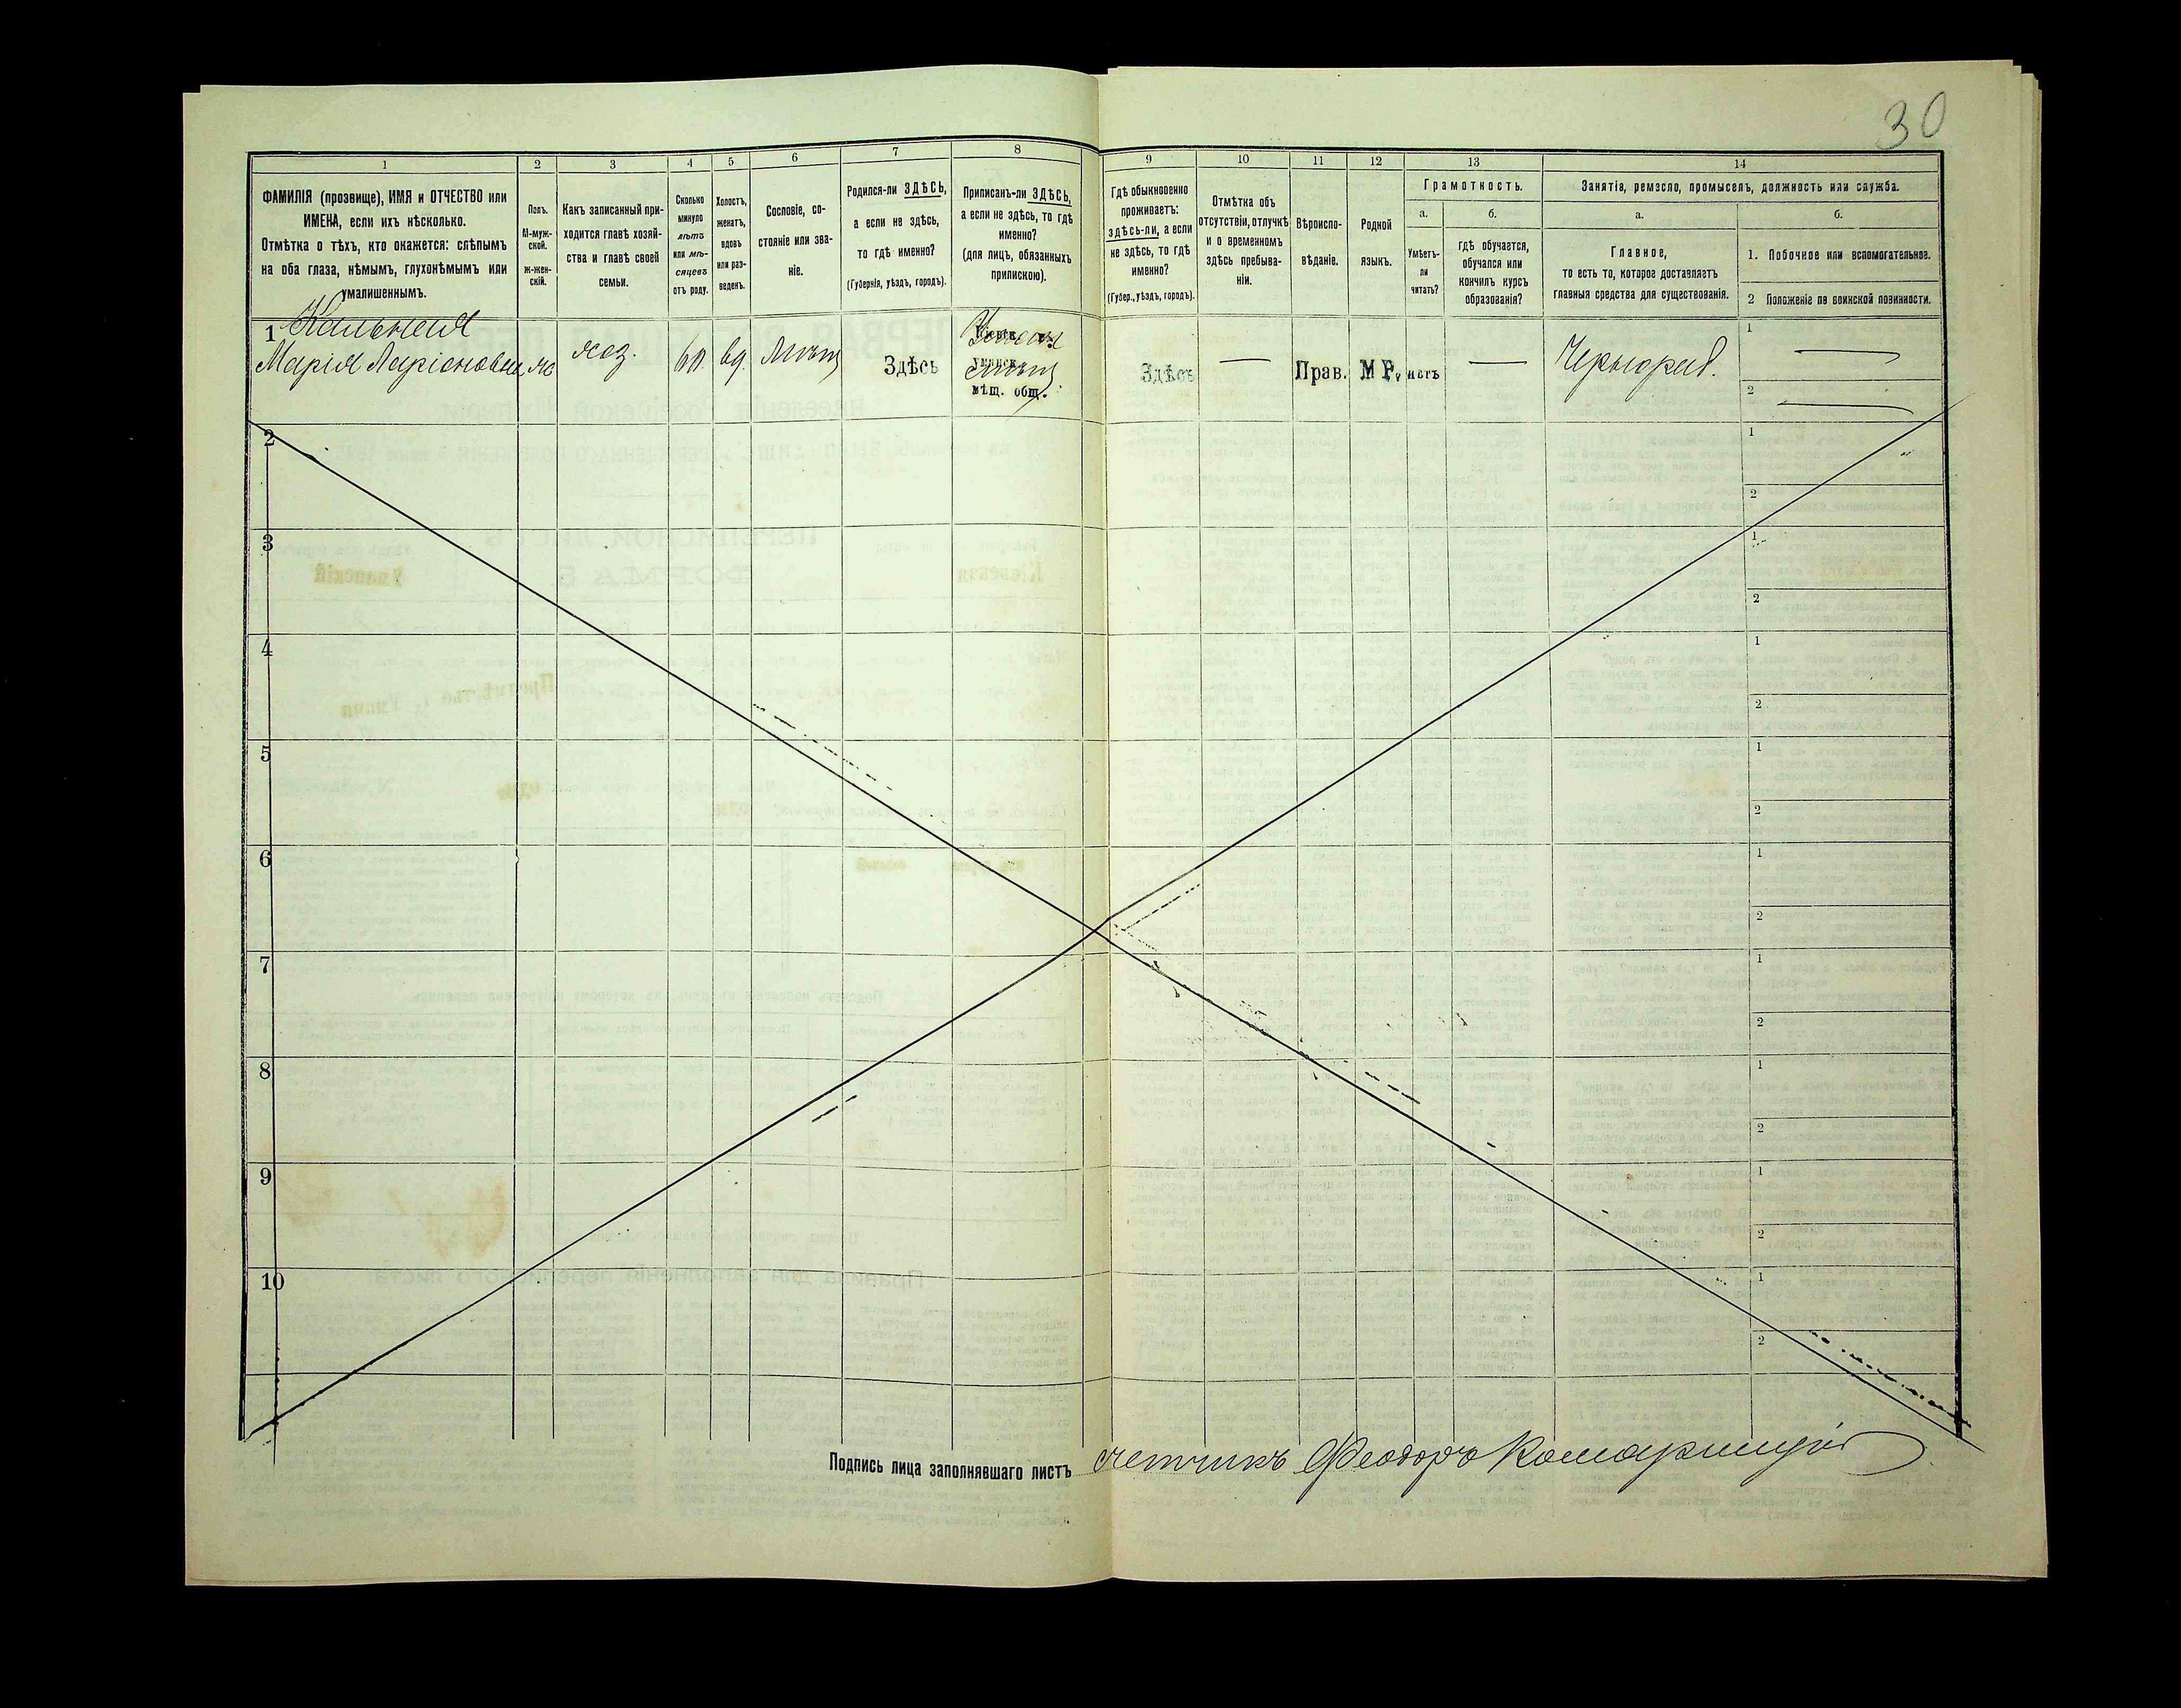 30
1 2 3 4 5 6 7 8 9 10 11 12 13 14
ФАМИЛІЯ (прозвище), ИМЯ и ОТЧЕСТВО или
ИМЕНА, если ихъ нѣсколько.
Отмѣтка о тѣхъ, кто окажется: слѣпымъ
на оба глаза, нѣмымъ, глухонѣмымъ или
умалишеннымъ.
Полъ.
М-муж-
ской.
ж-жен-
скій.
Какъ записанный при-
ходится главѣ хозяй-
ства и главѣ своей
семьи.
Сколько
минуло
лѣтъ
или мѣ-
сяцевъ
отъ роду.
Холостъ,
женатъ,
вдовъ
или раз-
веденъ.
Сословіе, со-
стояніе или зва-
ніе.
Родился-ли ЗДѢСЬ,
а если не здѣсь,
то гдѣ именно?
(Губернія, уѣздъ, городъ).
Приписанъ-ли ЗДѢСЬ,
а если не здѣсь, то гдѣ
именно?
(для лицъ, обязанныхъ
припискою).
Гдѣ обыкновенно
проживаетъ:
здѣсь-ли, а если
не здѣсь, то гдѣ
именно?
(Губер., уѣздъ, городъ).
Отмѣтка объ
отсутствіи, отлучкѣ
и о временномъ
здѣсь пребыва-
ніи.
Вѣроиспо-
вѣданіе.
Родной
языкъ.
Грамотность.
а.
Умѣетъ-
ли
читать?
б.
гдѣ обучается,
обучался или
кончилъ курсъ
образованія?
Занятія, ремесло, промыселъ, должность или служба.
а.
Главное,
то есть то, которое доставляетъ
главныя средства для существованія.
б.
1. Побочное или вспомогательное.
2 Положеніе по воинской повинности.
1
Марія Ларіоновна
ж
хоз.
60
вд.
Мѣщ
Здѣсь
мѣщ. общ.
Здѣсь
—
Прав.
М Р.
нѣтъ
—
Чернораб.
1 —
2 —
2 1
2
3 1
2
4 1
2
5 1
2
6 1
2
7 1
2
8 1
2
9 1
2
10 1
2
Подпись лица заполнявшаго листъ счетчикъ Феодоръ Комарницкій